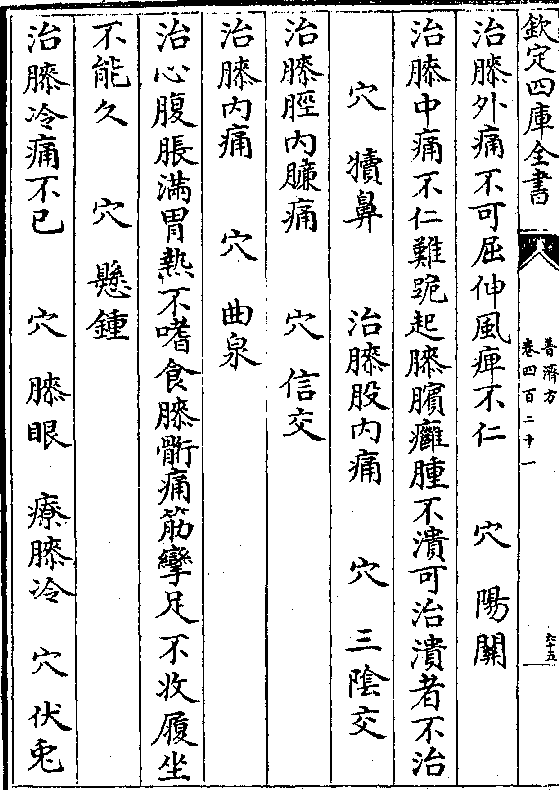 欽定四庫全書
普濟方
卷四百二十一
六十五
治膝外痛不可屈伸風痺不仁 穴 陽關
治膝中痛不仁難跪起膝臏癰腫不潰可治潰者不治
穴 犢鼻 治膝股内痛 穴 三陰交
治膝脛内臁痛 穴 信交
治膝内痛 穴 曲泉
治心腹脹滿胃熱不嗜食膝䯒痛筋攣足不收履坐
不能久 穴 懸鍾
治膝冷痛不已 穴 膝眼 療膝冷 穴 伏兎